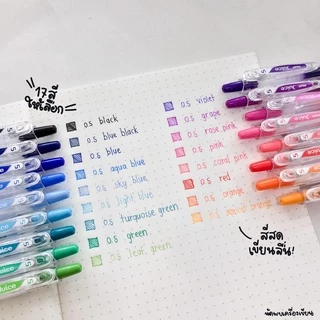 17 สี
ให้เลือก
0.5 black
0.5 blue black
0.5 blue
0.5 aqua blue
0.5 sky blue
0.5 light blue
0.5 turquoise green
0.5 green
0.5 leaf green
0.5 violet
0.5 grape
0.5 rose pink
0.5 pink
0.5 coral pink
0.5 red
0.5 orange
0.5 apricot orange
สีสด
เขียนลื่น!
Juice
Juice
Juice